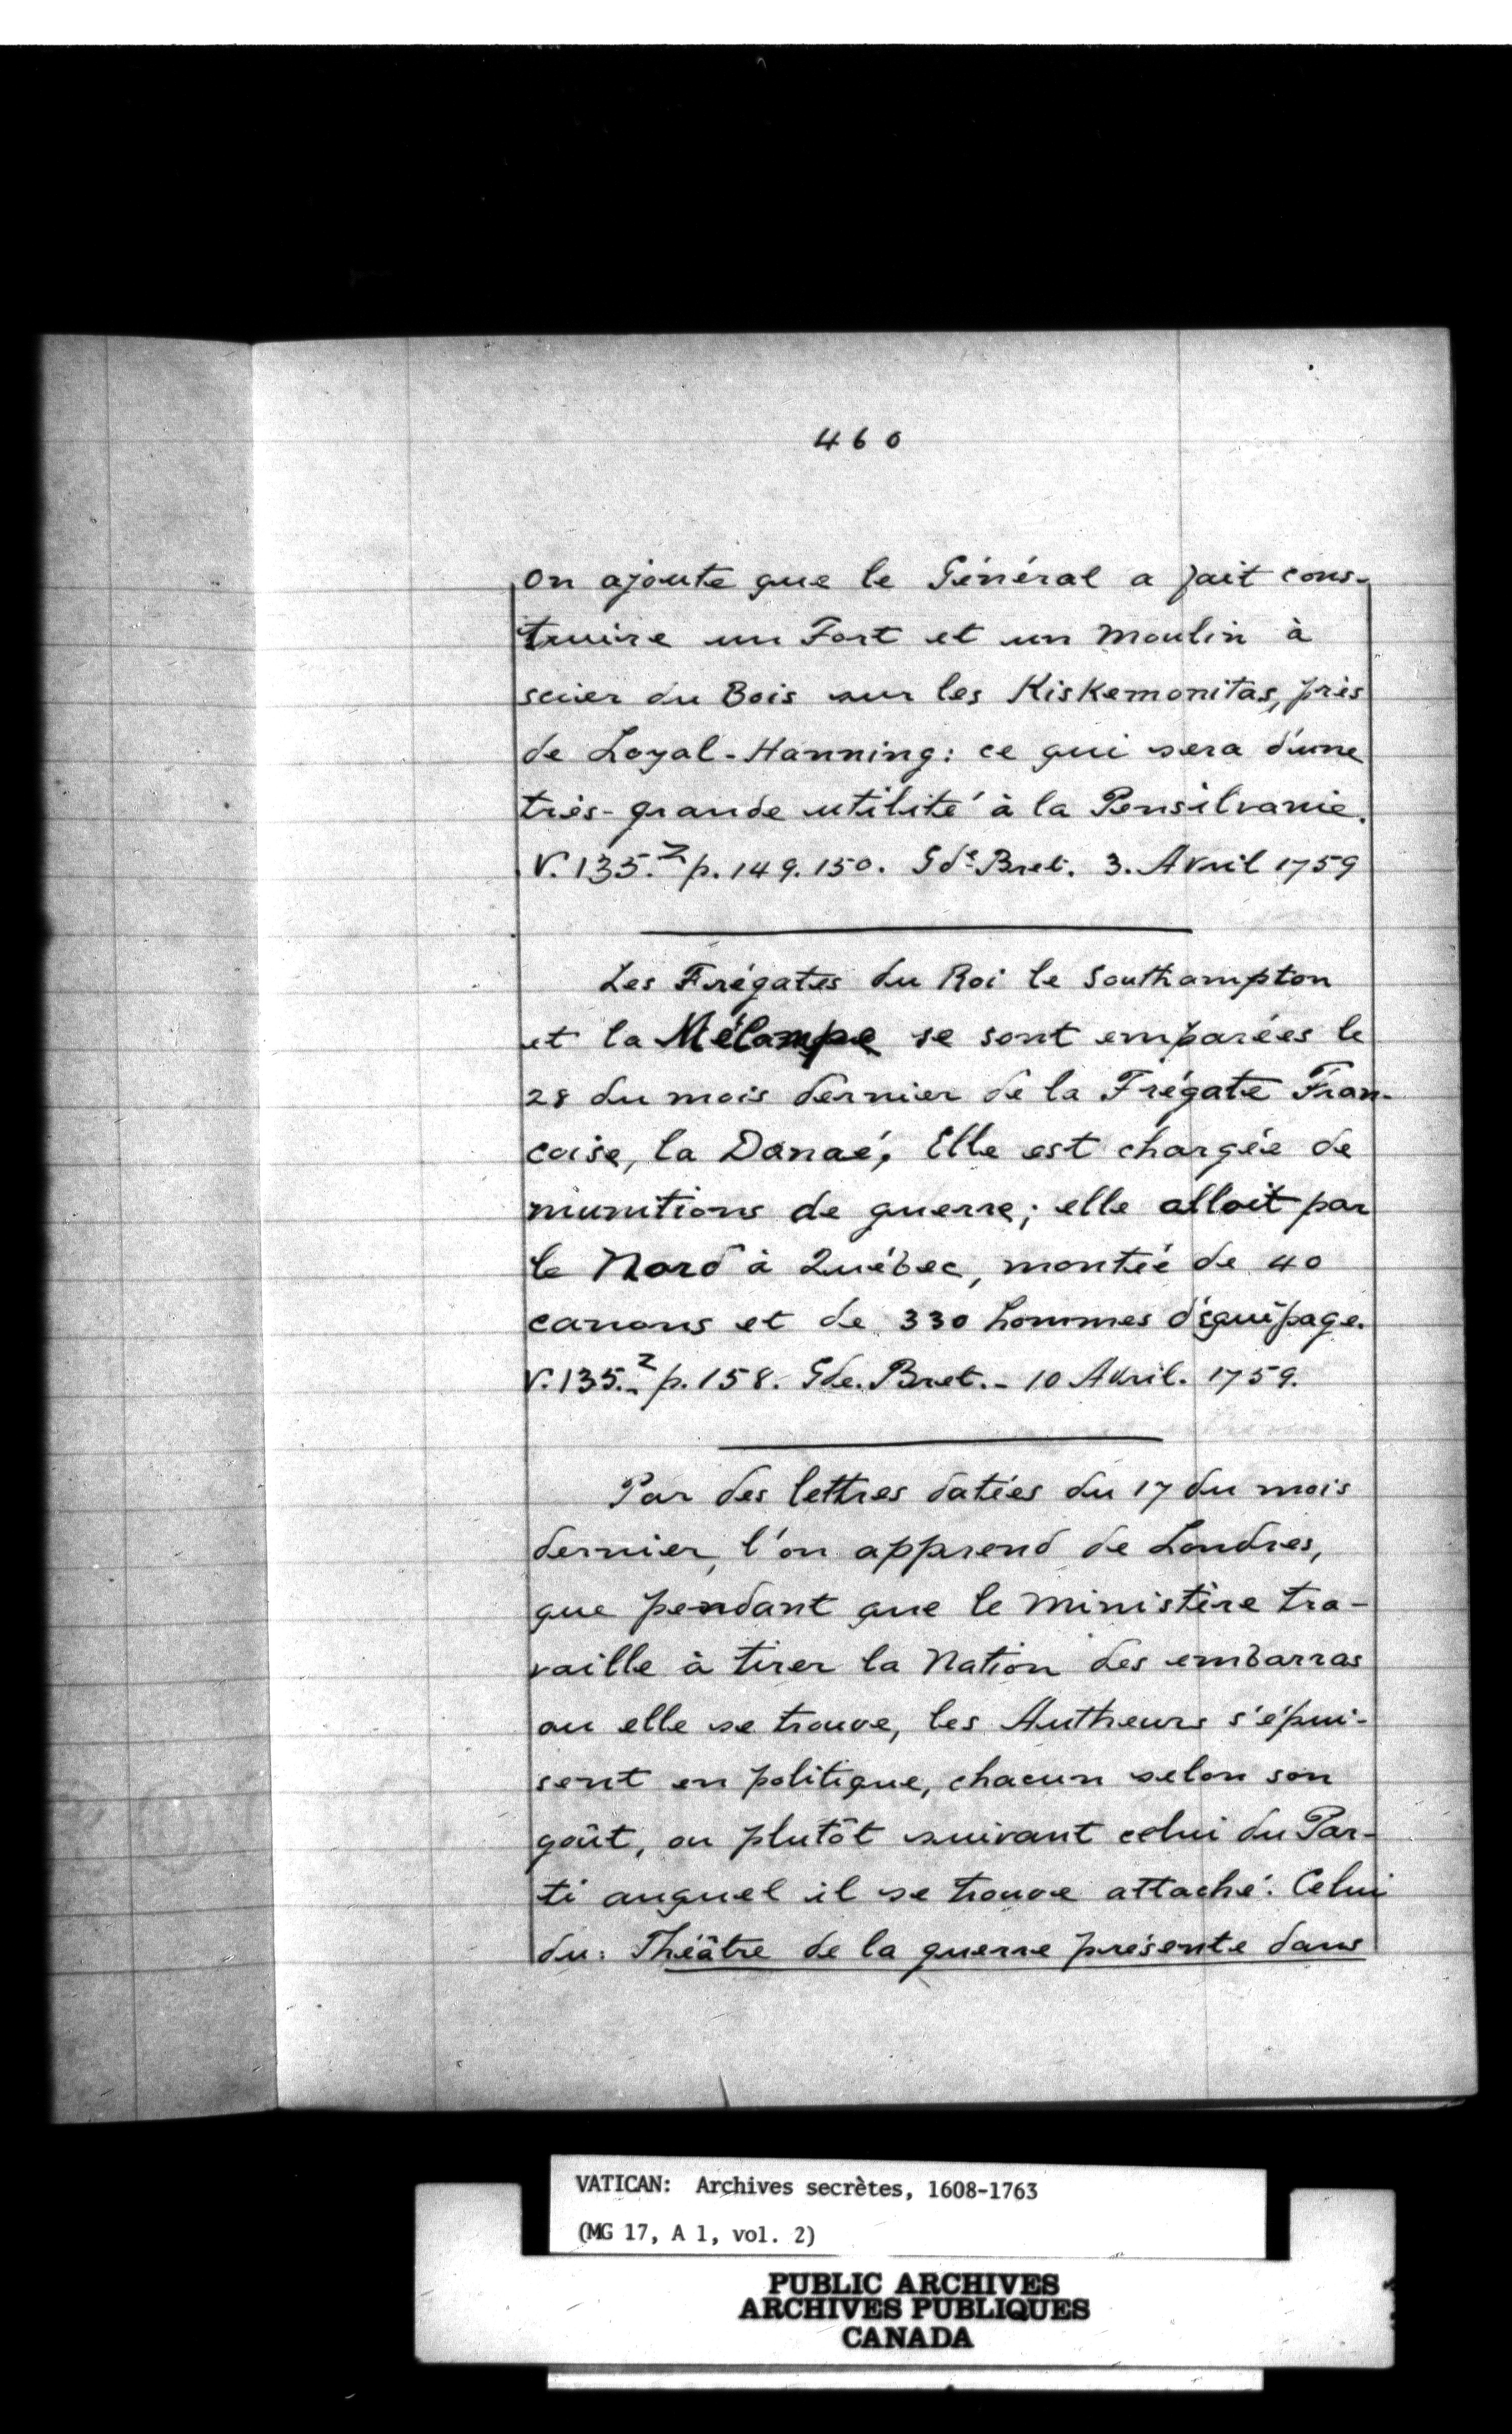 460
On ajoute que le Général a fait cons-
truire un Fort et un Moulin à
scier du Bois sur les Kiskemonitas, près
de Loyal-Hanning: ce qui sera d'une
très-grande utilité à la Pensilvanie.
V. 135.² p. 149. 150. Gde Bret. 3. Avril 1759
Les Frégates du Roi le Southampton
et la Mélampe se sont emparées le
28 du mois dernier de la Frégate Fran-
caise, la Danaé, Elle est chargée de
munitions de guerre; elle alloit par
le Nord à Québec, montée de 40
canons et de 330 hommes d'équipage.
V. 135.² p. 158. Gde. Bret. - 10 Avril. 1759.
Par des lettres datées du 17 du mois
dernier, l'on apprend de Londres,
que pendant que le Ministère tra-
vaille à tirer la Nation des embarras
ou elle se trouve, les Autheurs s'épui-
sent en politique, chacun selon son
goût, ou plutôt suivant celui du Par-
ti auquel il se trouve attaché. Celui
du: Théâtre de la guerre présente dans
VATICAN: Archives secrètes, 1608-1763
(MG 17, A 1, vol. 2)
PUBLIC ARCHIVES
ARCHIVES PUBLIQUES
CANADA